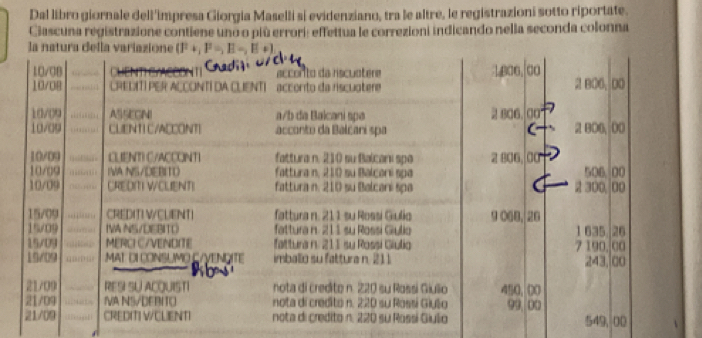 Dal libro giornale dell'impresa Giorgia Maselli si evidenziano, tra le altre, le registrazioni sotto riportate.
Ciascuna registrazione contiene uno o più errori: effettua le correzioni indicando nella seconda colonna
la natura della variazione (F+, F-, E-, E+).
10/08 CLIENTI C/ACCONTI Crediti v/clienti acconto da riscuotere 2 806, 00
10/08 CREDITI PER ACCONTI DA CLIENTI acconto da riscuotere 2 806, 00
10/09 ASSEGNI a/b da Balcani spa 2 806, 00
10/09 CLIENTI C/ACCONTI acconto da Balcani spa 2 806, 00
10/09 CLIENTI C/ACCONTI fattura n. 210 su Balcani spa 2 806, 00
10/09 IVA NS/DEBITO fattura n. 210 su Balcani spa 506, 00
10/09 CREDITI V/CLIENTI fattura n. 210 su Balcani spa 2 300, 00
15/09 CREDITI V/CLIENTI fattura n. 211 su Rossi Giulio 9 068, 26
15/09 IVA NS/DEBITO fattura n. 211 su Rossi Giulio 1 635, 26
15/09 MERCI C/VENDITE fattura n. 211 su Rossi Giulio 7 190, 00
15/09 MAT. DI CONSUMO C/VENDITE imballo su fattura n. 211 243, 00
Ribassi
21/09 RESI SU ACQUISTI nota di credito n. 220 su Rossi Giulio 450, 00
21/09 IVA NS/DEBITO nota di credito n. 220 su Rossi Giulio 99, 00
21/09 CREDITI V/CLIENTI nota di credito n. 220 su Rossi Giulio 549, 00